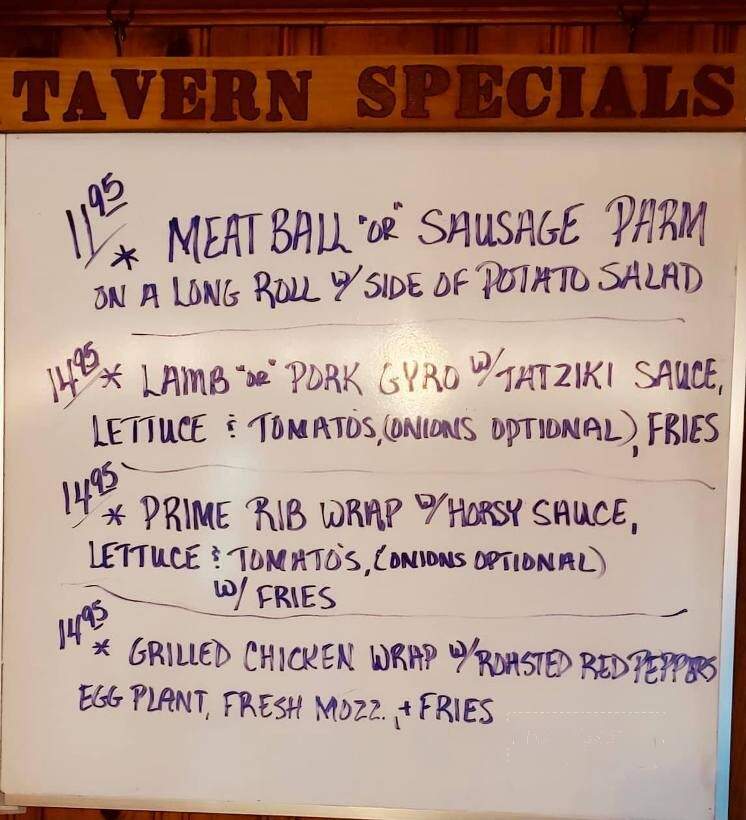 TAVERN SPECIALS
11 95
* MEATBALL "OR" SAUSAGE PARM
ON A LONG ROLL W/ SIDE OF POTATO SALAD
14 95 * LAMB "OR" PORK GYRO W/ TATZIKI SAUCE,
LETTUCE & TOMATOS, (ONIONS OPTIONAL), FRIES
14 95
* PRIME RIB WRAP W/ HORSY SAUCE,
LETTUCE & TOMATO'S, (ONIONS OPTIONAL)
W/ FRIES
14 95
* GRILLED CHICKEN WRAP W/ ROASTED RED PEPPERS
EGG PLANT, FRESH MOZZ., + FRIES